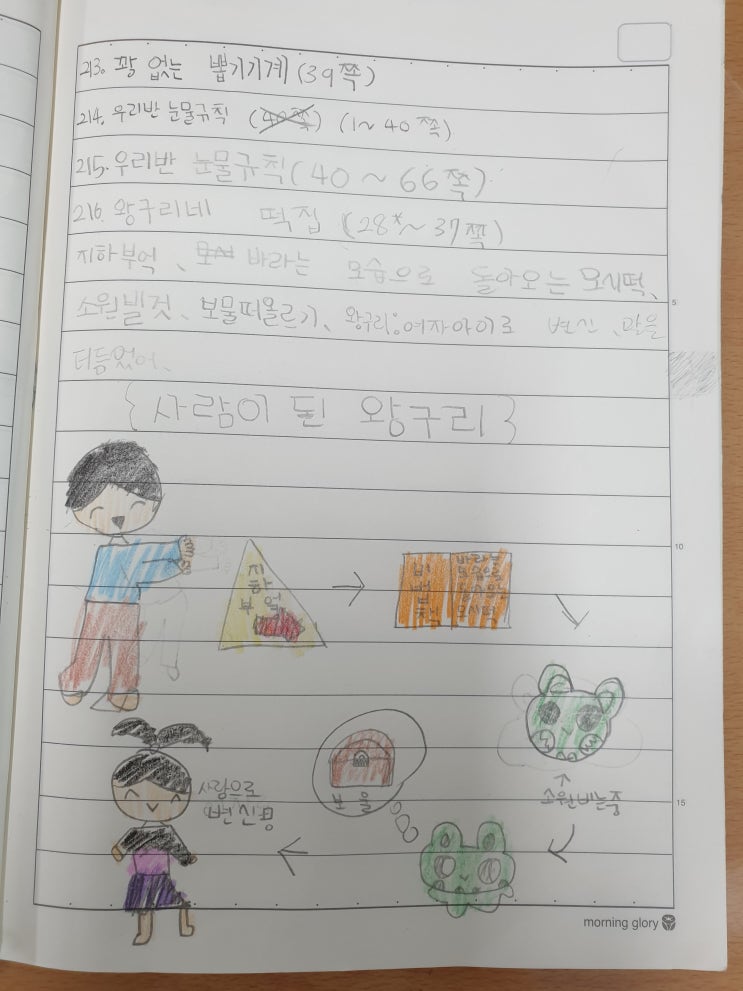 213. 꽝 없는 뽑기기계 (39쪽)
214. 우리반 눈물규칙 (40쪽) (1~40쪽)
215. 우리반 눈물규칙(40~66쪽)
216. 왕구리네 떡집 (28~37쪽)
지하부엌、모시 바라는 모습으로 돌아오는 모시떡、
소원빌것、보물떠올르기、왕구리:여자아이로 변신、말을
더듬었어、
{사람이 된 왕구리}
지하
부엌
비법
바라는
모습으로
모시떡
소원비는중
보물
사람으로
변신뿅
5
10
15
morning glory